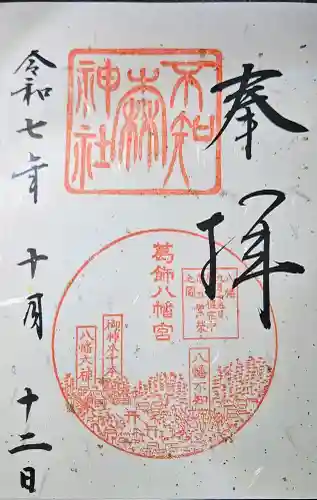 奉拝
不知森神社
葛飾八幡宮
八幡不知
御神本千本
八幡大神
令和七年十月十二日